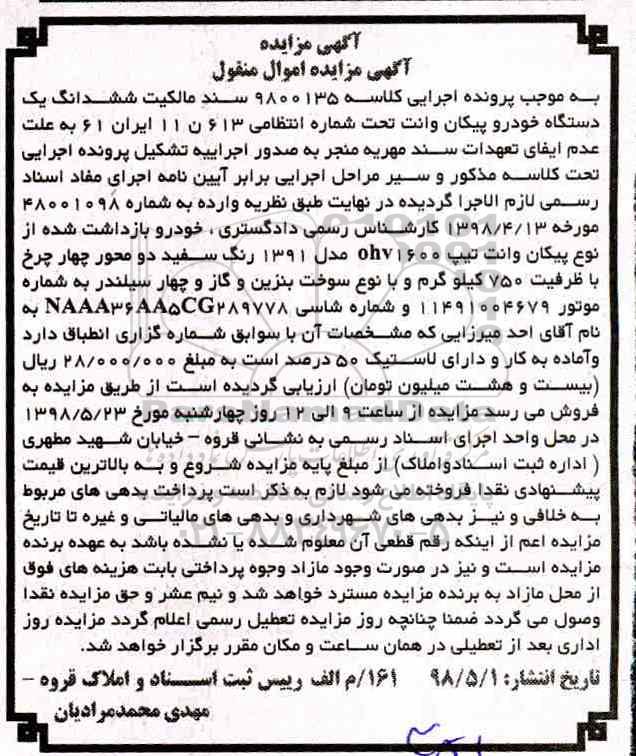 آگهی مزایده
آگهی مزایده اموال منقول
به موجب پرونده اجرایی کلاسه ۹۸۰۰۱۳۵ سند مالکیت ششدانگ یک
دستگاه خودرو پیکان وانت تحت شماره انتظامی ۶۱۳ ن ۱۱ ایران ۶۱ به علت
عدم ایفای تعهدات سند مهریه منجر به صدور اجراییه تشکیل پرونده اجرایی
تحت کلاسه مذکور و سیر مراحل اجرایی برابر آیین نامه اجرای مفاد اسناد
رسمی لازم الاجرا گردیده در نهایت طبق نظریه وارده به شماره ۴۸۰۰۱۰۹۸
مورخه ۱۳۹۸/۴/۱۳ کارشناس رسمی دادگستری ، خودرو بازداشت شده از
نوع پیکان وانت تیپ ohv۱۶۰۰ مدل ۱۳۹۱ رنگ سفید دو محور چهار چرخ
با ظرفیت ۷۵۰ کیلو گرم و با نوع سوخت بنزین و گاز و چهار سیلندر به شماره
موتور ۱۱۴۹۱۰۰۴۶۷۹ و شماره شاسی NAAA۳۶AA۵CG۲۸۹۷۷۸ به
نام آقای احد میرزایی که مشخصات آن با سوابق شماره گزاری انطباق دارد
وآماده به کار و دارای لاستیک ۵۰ درصد است به مبلغ ۲۸/۰۰۰/۰۰۰ ریال
(بیست و هشت میلیون تومان) ارزیابی گردیده است از طریق مزایده به
فروش می رسد مزایده از ساعت ۹ الی ۱۲ روز چهارشنبه مورخ ۱۳۹۸/۵/۲۳
در محل واحد اجرای اسناد رسمی به نشانی قروه - خیابان شهید مطهری
( اداره ثبت اسنادواملاک) از مبلغ پایه مزایده شروع و به بالاترین قیمت
پیشنهادی نقدا فروخته می شود لازم به ذکر است پرداخت بدهی های مربوط
به خلافی و نیز بدهی های شهرداری و بدهی های مالیاتی و غیره تا تاریخ
مزایده اعم از اینکه رقم قطعی آن معلوم شده یا نشده باشد به عهده برنده
مزایده است و نیز در صورت وجود مازاد وجوه پرداختی بابت هزینه های فوق
از محل مازاد به برنده مزایده مسترد خواهد شد و نیم عشر و حق مزایده نقدا
وصول می گردد ضمنا چنانچه روز مزایده تعطیل رسمی اعلام گردد مزایده روز
اداری بعد از تعطیلی در همان ساعت و مکان مقرر برگزار خواهد شد.
تاریخ انتشار: ۹۸/۵/۱ ۱۶۱/م الف رییس ثبت اسناد و املاک قروه -
مهدی محمدمرادیان